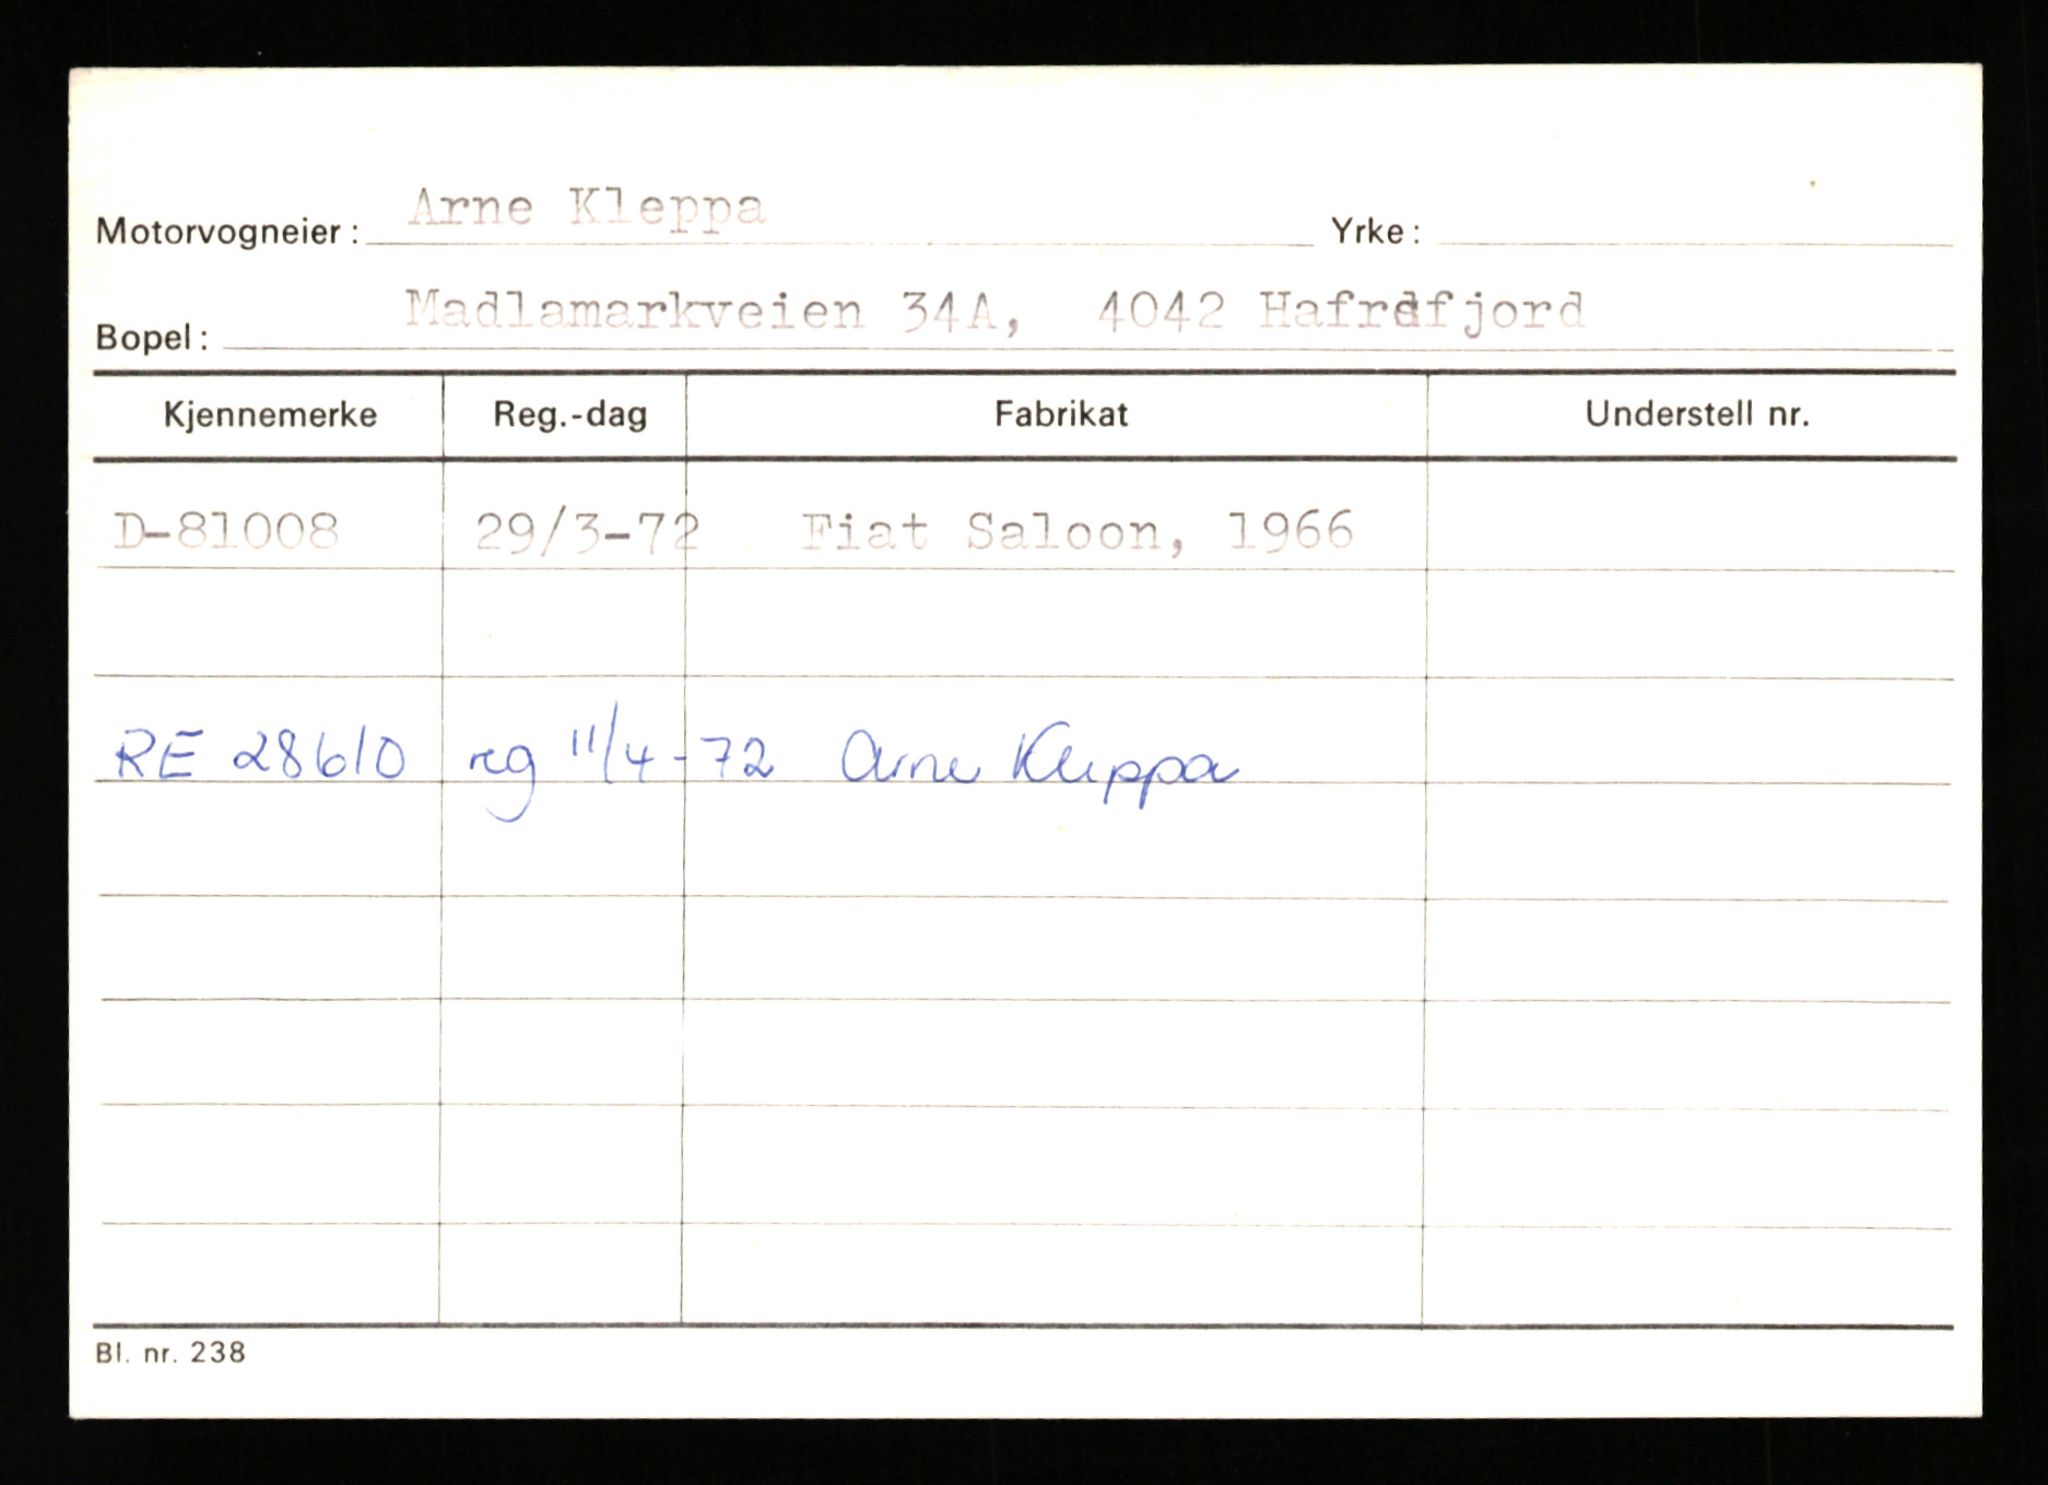 Motorvogneier: Arne Kleppa Yrke:
Bopel: Madlamarkveien 34A, 4042 Hafrsfjord
Kjennemerke Reg.-dag Fabrikat Understell nr.
D-81008 29/3-72 Fiat Saloon, 1966
RE 28610 reg 11/4-72 Arne Kleppa
Bl. nr. 238